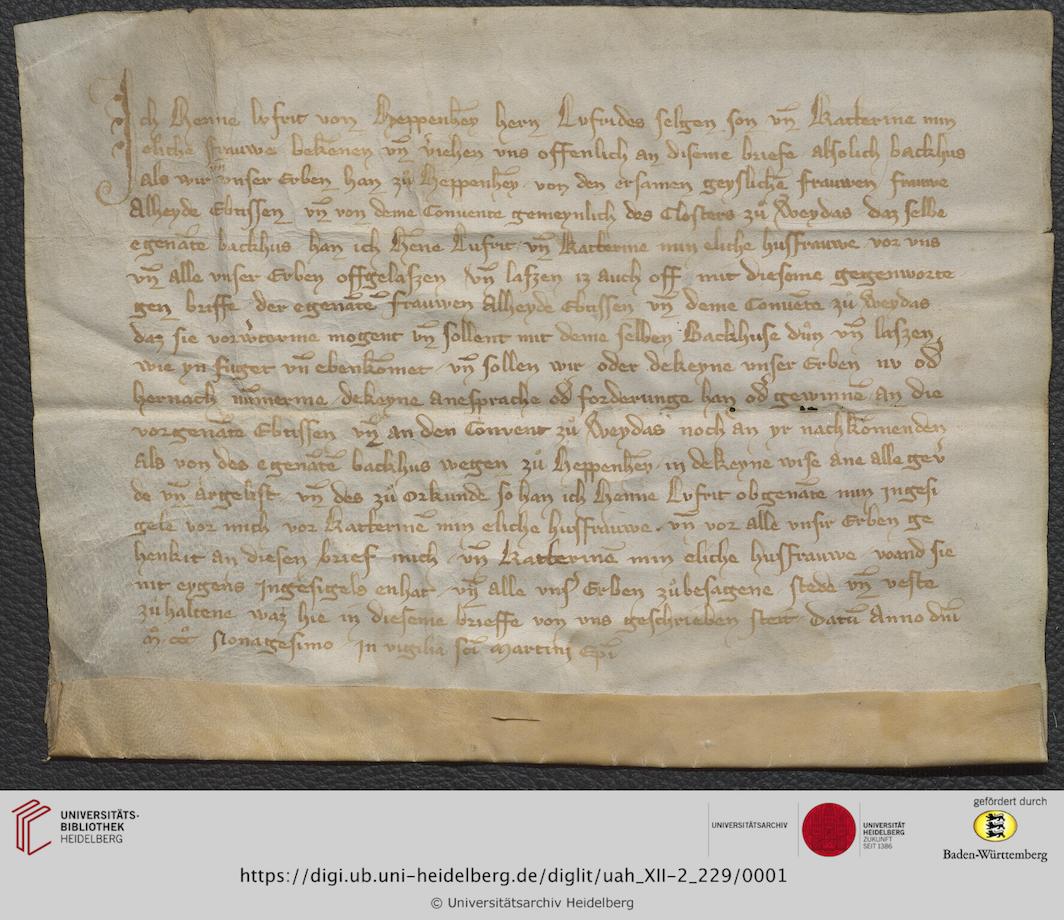 Ich Henne Lvfrit von Heppenhey͂ hern Lvfrides selgen son vn͂ Katterine min
eliche frauwe beke͂nen vn͂ v͛iehen vns offenlich an diseme briefe alsolich backhus
als wir vnser Erben han zů Heppenhey͂ von den ersamen geysliche͂ frauwen frauwe
Alheyde Ebtissen vn͂ von deme Convente gemeynlich des Closters zů Weydas daz selbe
egena͂te backhus han ich He͂ne Lufrit vn͂ Katterine min eliche husfrauwe vor vns
vn͂ alle vnser Erben offgelaszen vn͂ laszen iz auch off mit dieseme gegenworte
gen briffe der egena͂te͂ frauwen Alheyde Ebtissen vn͂ deme Conve͂te zů Weydas
daz sie vorw͛terme mogent vn͂ sollent mit deme selben Backhuse důn vn͂ laszen
wie yn fůget vn͂ ebenko͂met vn͂ sollen wir oder dekeyne vnser Erben nv od͛
hernach num͂erme dekeyne anesprache od͛ forderunge han od͛ gewinne͂ an die
vorgena͂te Ebtissen vn͂ an den Convent zů Weydas noch an yr nachko͂menden
als von des egena͂te͂ backhus wegen zů Heppenhey͂ in dekeyne wise ane alle gev͛
de vn͂ argelist vn͂ des zů orkunde so han ich Henne Lvfrit obgena͂te min Ingesi
gele vor mich vor Katterine͂ min eliche husfrauwe vn͂ vor alle vnsir Erben ge
henkit an diesen brief mich vn͂ Katterine͂ min eliche husfrauwe wand sie
nit eygens Ingesigels enhat vn͂ alle vns͛ Erben zůbesagene stede vn͂ veste
zůhaltene waz hie in dieseme brieffe von vns geschrieben steit Datu͂ Anno dn͂i
mͦ cccͦ Nonagesimo In vigilia sc͂i Martini Ep͂i
UNIVERSITÄTS-
BIBLIOTHEK
HEIDELBERG
UNIVERSITÄTSARCHIV
UNIVERSITÄT
HEIDELBERG
ZUKUNFT
SEIT 1386
gefördert durch
Baden-Württemberg
https://digi.ub.uni-heidelberg.de/diglit/uah_XII-2_229/0001
© Universitätsarchiv Heidelberg